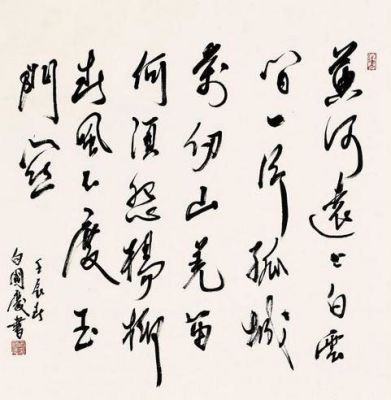 黄河遠上白雲
間一片孤城
萬仞山羌笛
何須怨楊柳
春風不度玉
門關
壬辰春
白國慶書